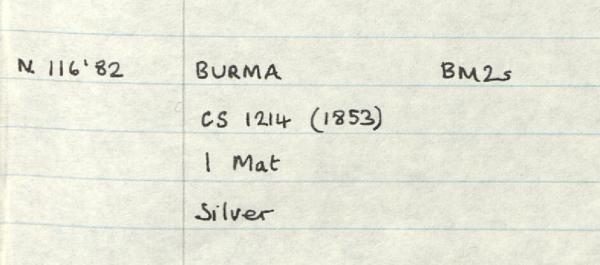 N 116'82 BURMA BM2s
CS 1214 (1853)
1 Mat
Silver